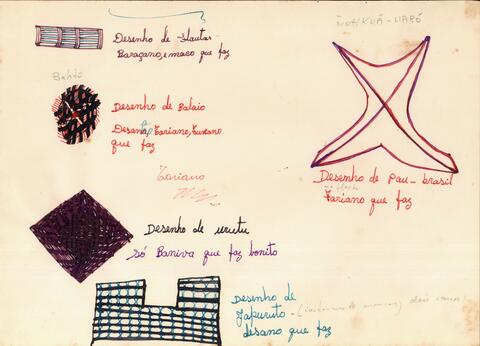 Desenho de flautas
Baraçano, e maco que faz
Desenho de Balaio
Desana, Tariano, Tucano
que faz
Tariano
Desenho de urutu
só Baniva que faz bonito
Desenho de
Japuruto -
desano que faz
Desenho de pau-brasil
Tariano que faz